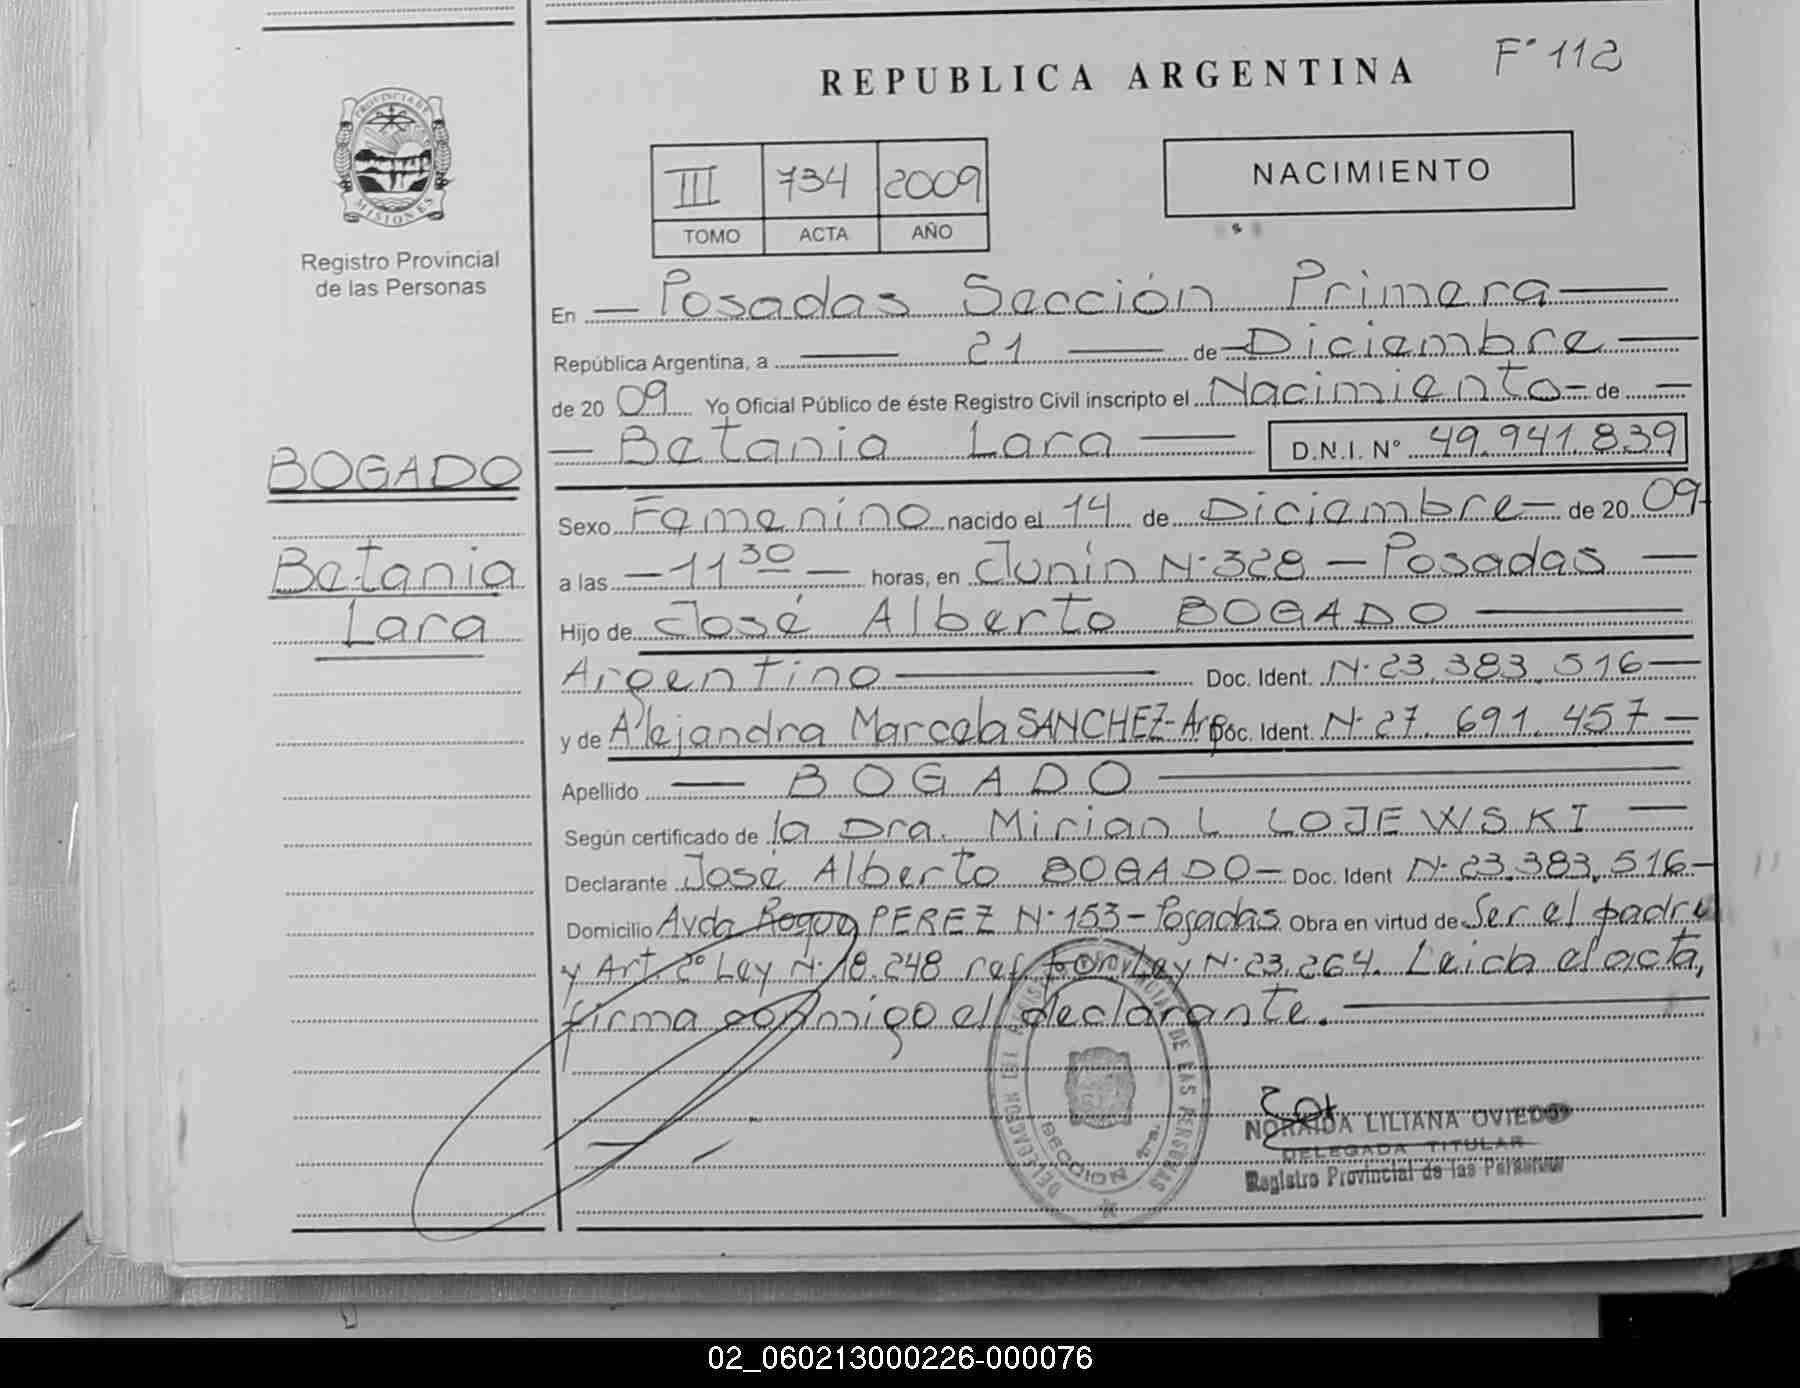 F° 112
REPUBLICA ARGENTINA
PROVINCIA DE
MISIONES
Registro Provincial
de las Personas
III 734 2009
TOMO ACTA AÑO
NACIMIENTO
En — Posadas Sección Primera —
República Argentina, a — 21 — de — Diciembre —
de 20 09 Yo Oficial Público de éste Registro Civil inscripto el Nacimiento — de —
— Betania Lara — D.N.I. N° 49.941.839
BOGADO
Betania
Lara
Sexo Femenino nacido el 14 de Diciembre — de 20 09 -
a las — 11 30 — horas, en Junín N° 328 — Posadas —
Hijo de José Alberto BOGADO —
Argentino — Doc. Ident. N° 23.383.516 —
y de Alejandra Marcela SANCHEZ - Arg Doc. Ident. N° 27.691.457 —
Apellido — BOGADO —
Según certificado de la Dra. Mirian L LOJEWSKI —
Declarante José Alberto BOGADO — Doc. Ident N° 23.383.516 —
Domicilio Avda Roque PEREZ N° 153 - Posadas Obra en virtud de Ser el padre
y Art 2° Ley N° 18.248 ref por Ley N° 23.264. Leida el acta,
firma conmigo el declarante. —
DE LAS PERSONAS
DELEGACION
SECCION 1ra.
NORAIDA LILIANA OVIEDO
DELEGADA TITULAR
Registro Provincial de las Personas
02_060213000226-000076